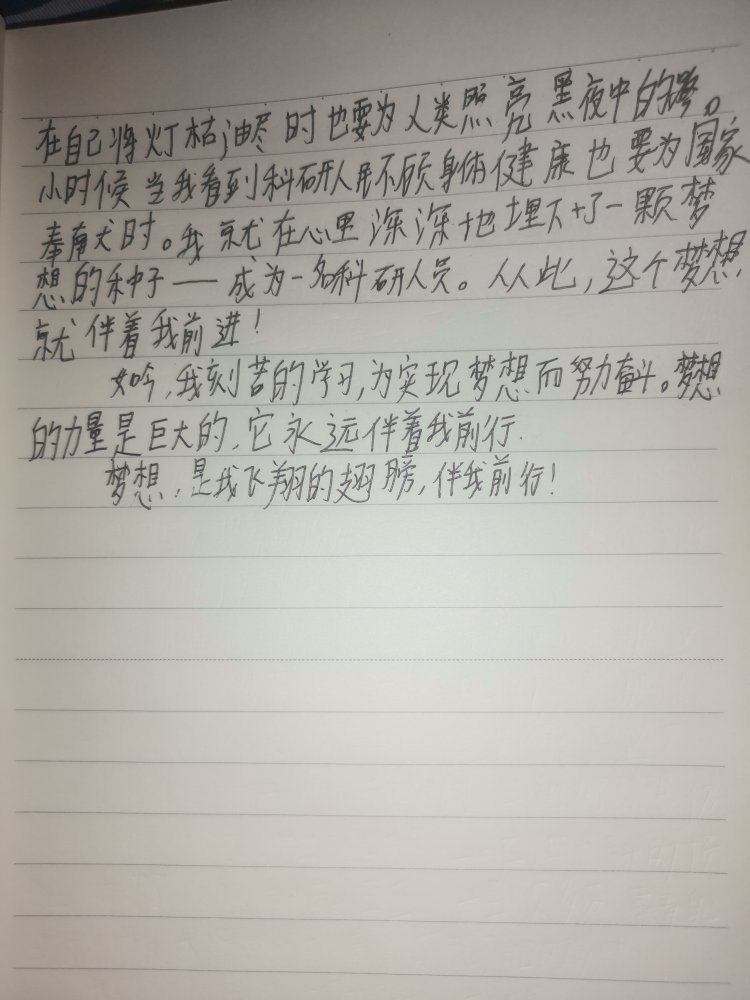 在自己将灯枯油尽时也要为人类照亮黑夜中的路。
小时候当我看到科研人员不顾身体健康也要为国家
奉献时。我就在心里深深地埋下了一颗梦
想的种子——成为一名科研人员。从此,这个梦想,
就伴着我前进!
如今,我刻苦的学习,为实现梦想而努力奋斗。梦想
的力量是巨大的,它永远伴着我前行.
梦想,是我飞翔的翅膀,伴我前行!